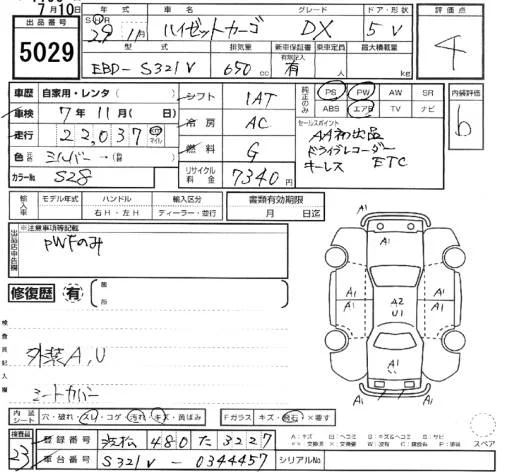 7月10日
出品番号 5029
年式 車名 グレード ドア・形状 評価点
SHR 29 11月 ハイゼットカーゴ DX 5V 4
型式 排気量 新車保証書 有無記入 乗車定員 最大積載量
EBD- S321V 650 cc 有 人 kg
車歴 自家用・レンタ シフト 1AT 純正のみ PS PW AW SR 内装評価
ABS エアB TV ナビ b
車検 7年11月( 日) 冷房 AC セールスポイント
走行 22,037 km マイル AA初出品
燃料 G ドライブレコーダー
色 シルバー→ キーレス ETC
カラーNo. S28 リサイクル料金 7340円
輸入車 モデル年式 ハンドル 輸入区分 書類有効期限
右H・左H ディーラー・並行 月 日迄
出品店申告欄 ※注意事項等記載
PWFのみ
A1 A1
修復歴 有 箇所
A1 A1 A2 A1
U1
検査員記入欄 外装A,U A1
シートカバー
内試 シート 穴・破れ・スレ・コゲ・汚れ・キズ・黄ばみ Fガラス キズ・飛石・×要す
A:キズ U:ヘコミ B:キズ&ヘコミ S:サビ
スペア
検査証 23 登録番号 浜松 480 た 3227
車台番号 S321V - 0344457 シリアルNo.